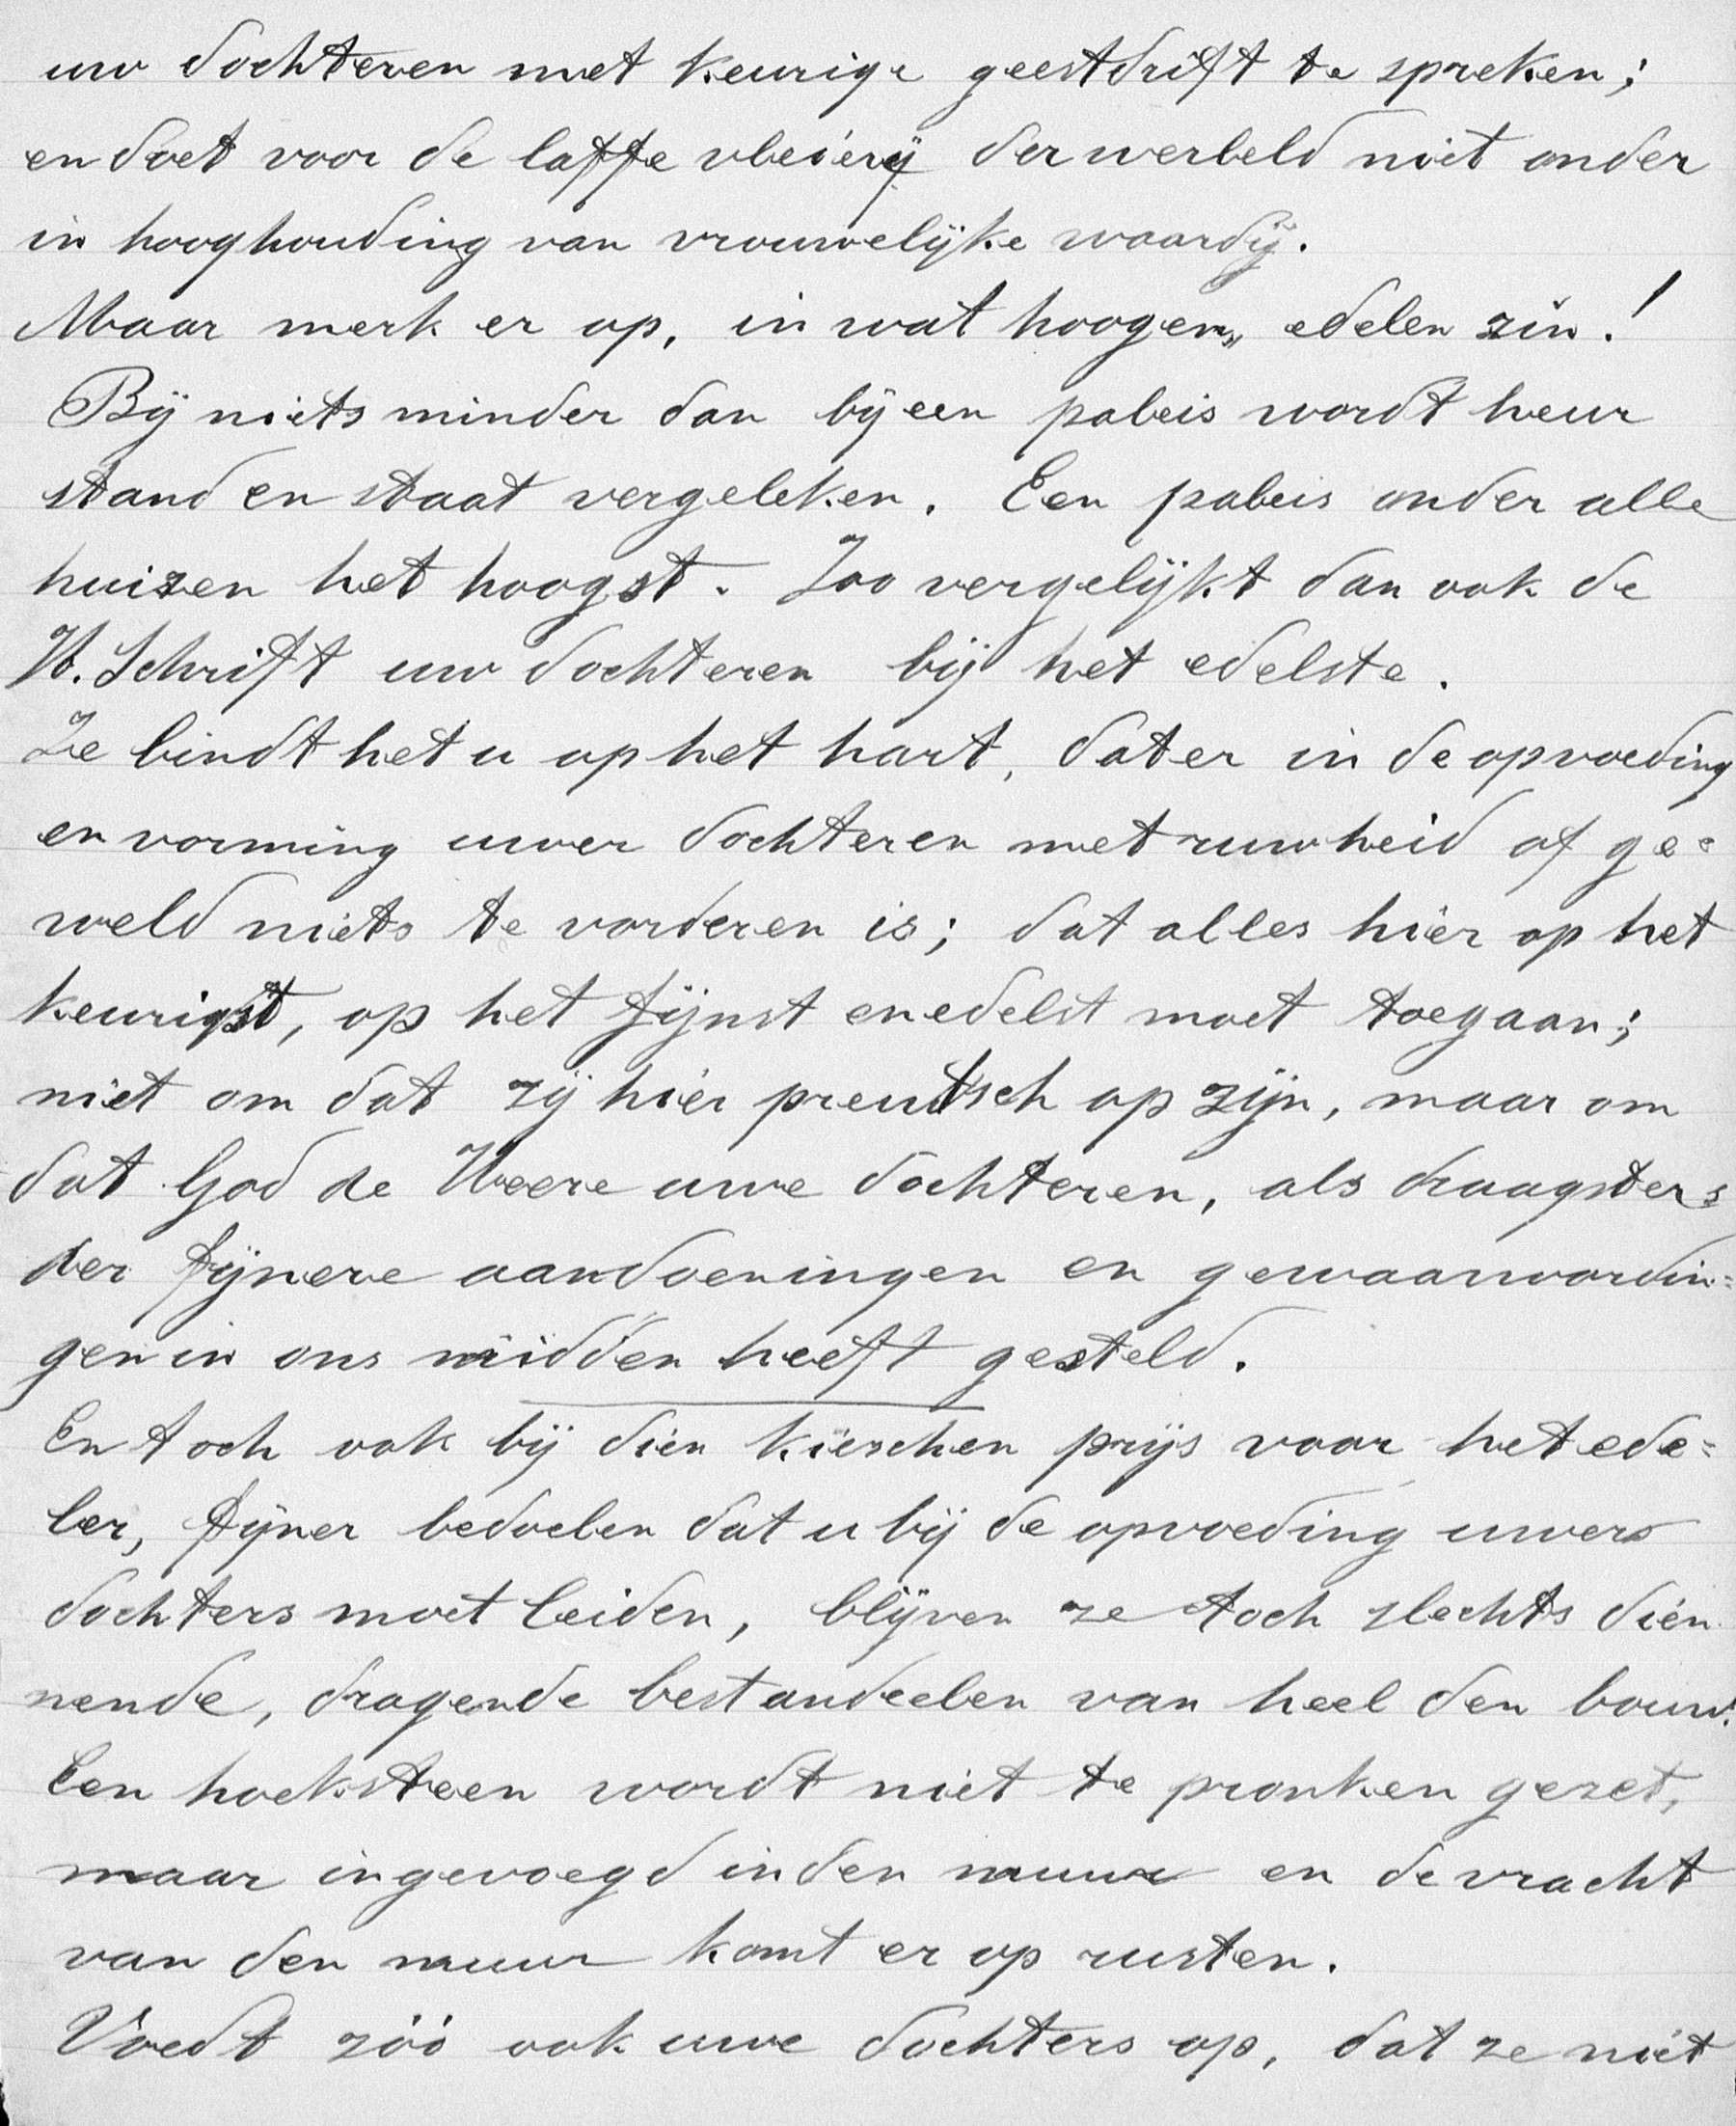 uw dochteren met keurige geestdrift te spreken;
en doet voor de laffe vleierij der wereld niet onder
in hooghouding van vrouwelijke waardij.
Maar merk er op, in wat hoogen, edelen zin!
Bij niets minder dan bij een paleis wordt heur
stand en staat vergeleken. Een paleis onder alle
huizen het hoogst. Zoo vergelijkt dan ook de
H. Schrift uw dochteren bij het edelste.
Ze bindt het u op het hart, dat er in de opvoeding
en vorming uwer dochteren met ruwheid of ge=
weld niets te vorderen is; dat alles hier op het
keurigst, op het fijnst en edelst moet toegaan;
niet om dat zij hier preutsch op zijn, maar om
dat God de Heere uwe dochteren, als draagsters
der fijnere aandoeningen en gewaarwordin=
gen in ons midden heeft gesteld.
En toch ook bij dien kieschen prijs voor het ede=
ler, fijner bedoelen dat u bij de opvoeding uwers
dochters moet leiden, blijven ze toch slechts die
nende, dragende bestandeelen van heel den bouw.
Een hoeksteen wordt niet te pronken gezet,
maar ingevoegd in den muur en de vracht
van den muur komt er op rusten.
Voedt zóó ook uwe dochters op, dat ze niet